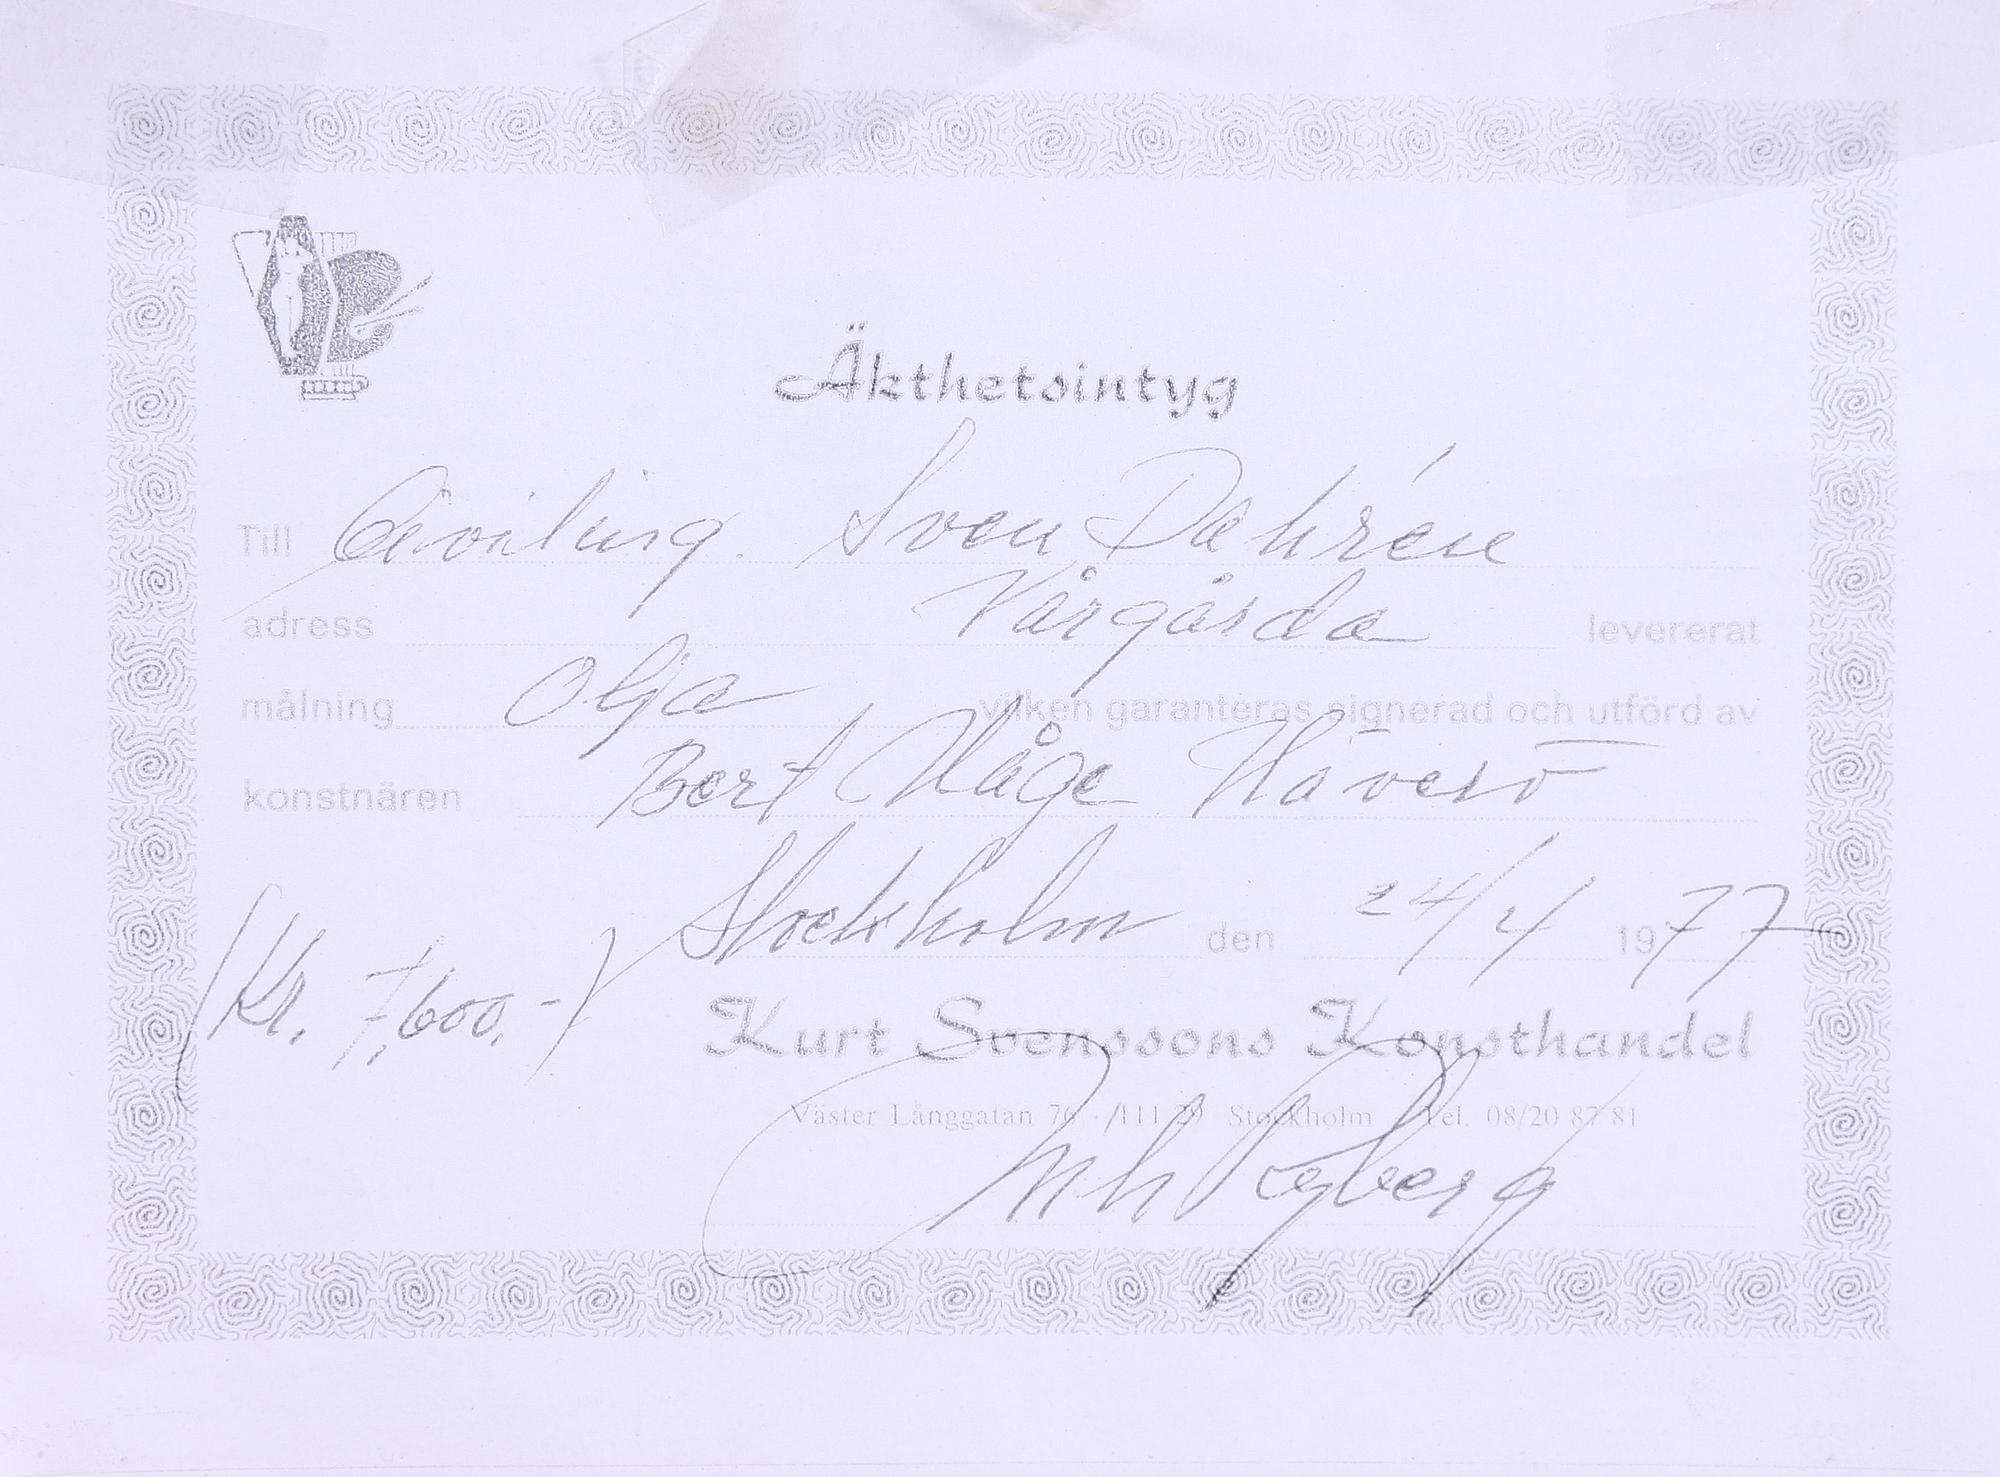 Äkthetsintyg
Till Civiling. Sven Dahrén
adress Vårgårda levererat
målning Olja vilken garanteras signerad och utförd av
konstnären Bert Håge Häverö
Stockholm den 24/4 1977
(Kr. 7,600.-)
Kurt Svenssons Konsthandel
Väster Långgatan 76 · 111 29 Stockholm Tel. 08/20 87 81
Ryberg